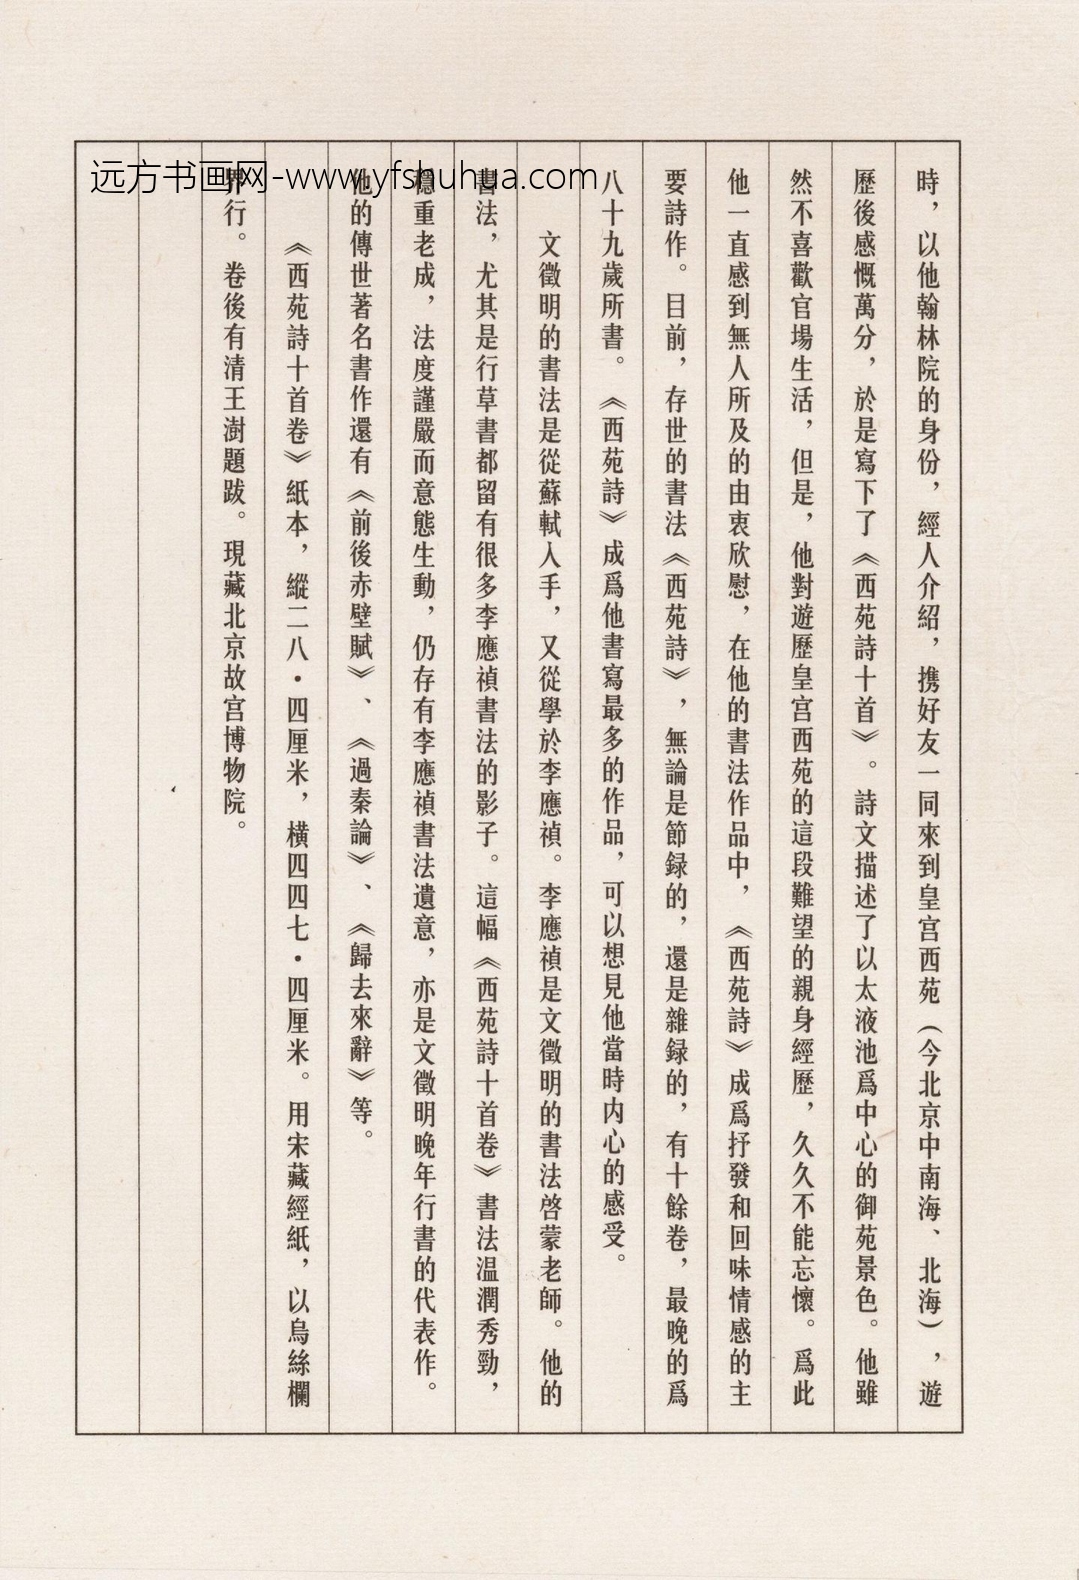 远方书画网-www.yfshuhua.com
時，以他翰林院的身份，經人介紹，携好友一同來到皇宫西苑（今北京中南海、北海），遊
歷後感慨萬分，於是寫下了《西苑詩十首》。詩文描述了以太液池爲中心的御苑景色。他雖
然不喜歡官場生活，但是，他對遊歷皇宫西苑的這段難望的親身經歷，久久不能忘懷。爲此
他一直感到無人所及的由衷欣慰，在他的書法作品中，《西苑詩》成爲抒發和回味情感的主
要詩作。目前，存世的書法《西苑詩》，無論是節録的，還是雜録的，有十餘卷，最晚的爲
八十九歲所書。《西苑詩》成爲他書寫最多的作品，可以想見他當時内心的感受。
文徵明的書法是從蘇軾人手，又從學於李應禎。李應禎是文徵明的書法啓蒙老師。他的
書法，尤其是行草書都留有很多李應禎書法的影子。這幅《西苑詩十首卷》書法温潤秀勁，
穩重老成，法度謹嚴而意態生動，仍存有李應禎書法遺意，亦是文徵明晚年行書的代表作。
他的傳世著名書作還有《前後赤壁賦》、《過秦論》、《歸去來辭》等。
《西苑詩十首卷》紙本，縱二八·四厘米，橫四四七·四厘米。用宋藏經紙，以烏絲欄
界行。卷後有清王澍題跋。現藏北京故宫博物院。